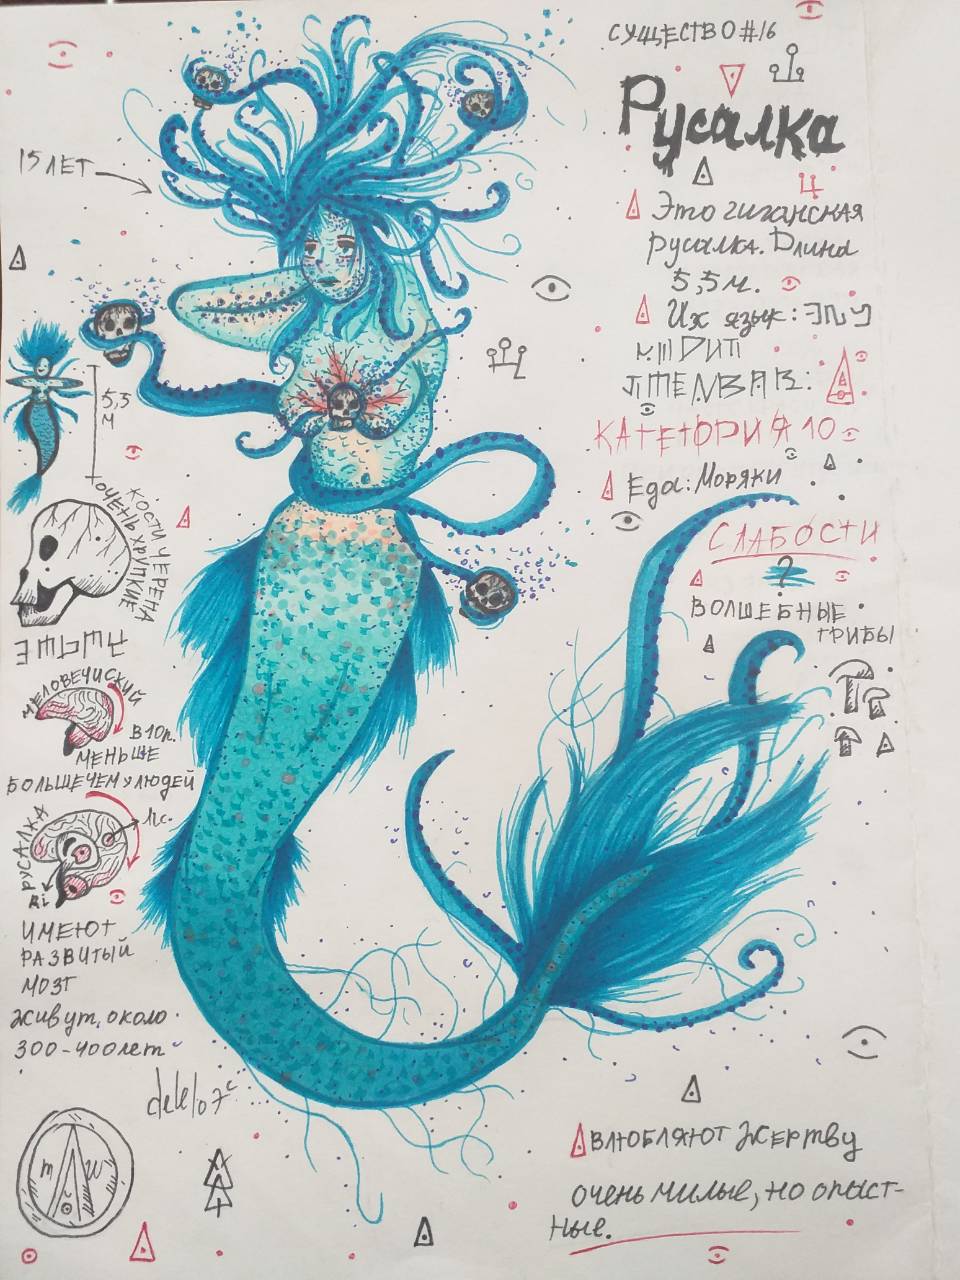 СУЩЕСТВО #16
Русалка
15 ЛЕТ
Это гиганская
русалка. Длина
5,5 м.
Их язык:
КАТЕГОРИЯ 10
Еда: Моряки
СЛАБОСТИ
?
ВОЛШЕБНЫЕ
ГРИБЫ
5,5
М
КОСТИ ЧЕРЕПА
ОЧЕНЬ ХРУПКИЕ
ЧЕЛОВЕЧИСКИЙ
В 10 р.
МЕНЬШЕ
БОЛЬШЕ ЧЕМ У ЛЮДЕЙ
РУСАЛКА
ИМЕЮТ
РАЗВИТЫЙ
МОЗГ
живут около
300-400 лет
m W
ВЛЮБЛЯЮТ ЖЕРТВУ
очень милые, но опыст-
ные.